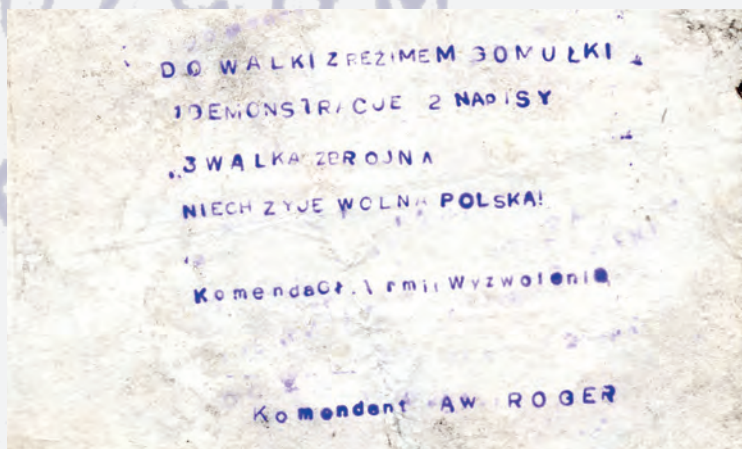 DO WALKI Z REŻIMEM GOMUŁKI
1 DEMONSTRACJE 2 NAPISY
3 WALKA ZBROJNA
NIECH ŻYJE WOLNA POLSKA!
Komenda Gł. Armii Wyzwolenia
Komendant AW ROGER